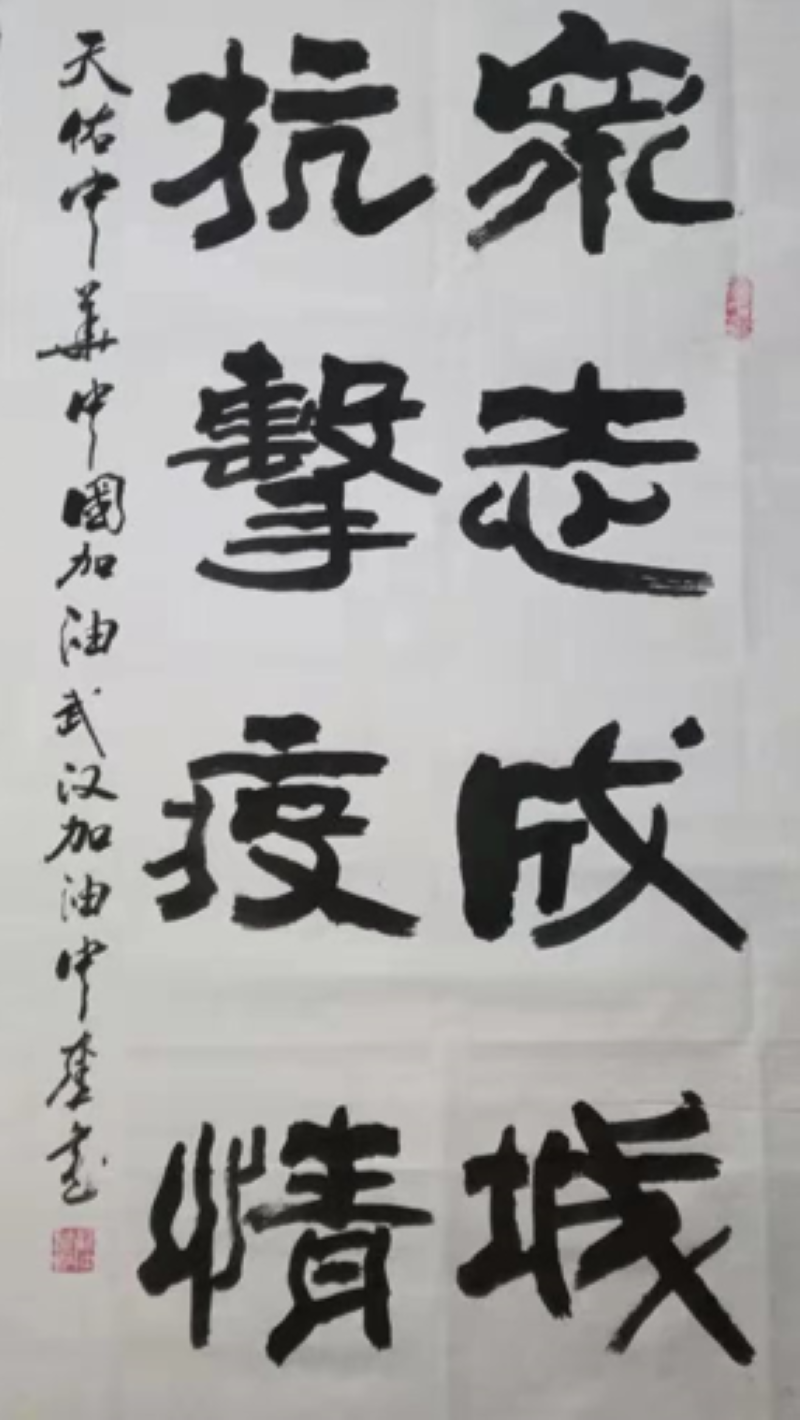 眾志成城
抗擊疫情
天佑中華中國加油武汉加油中奎書